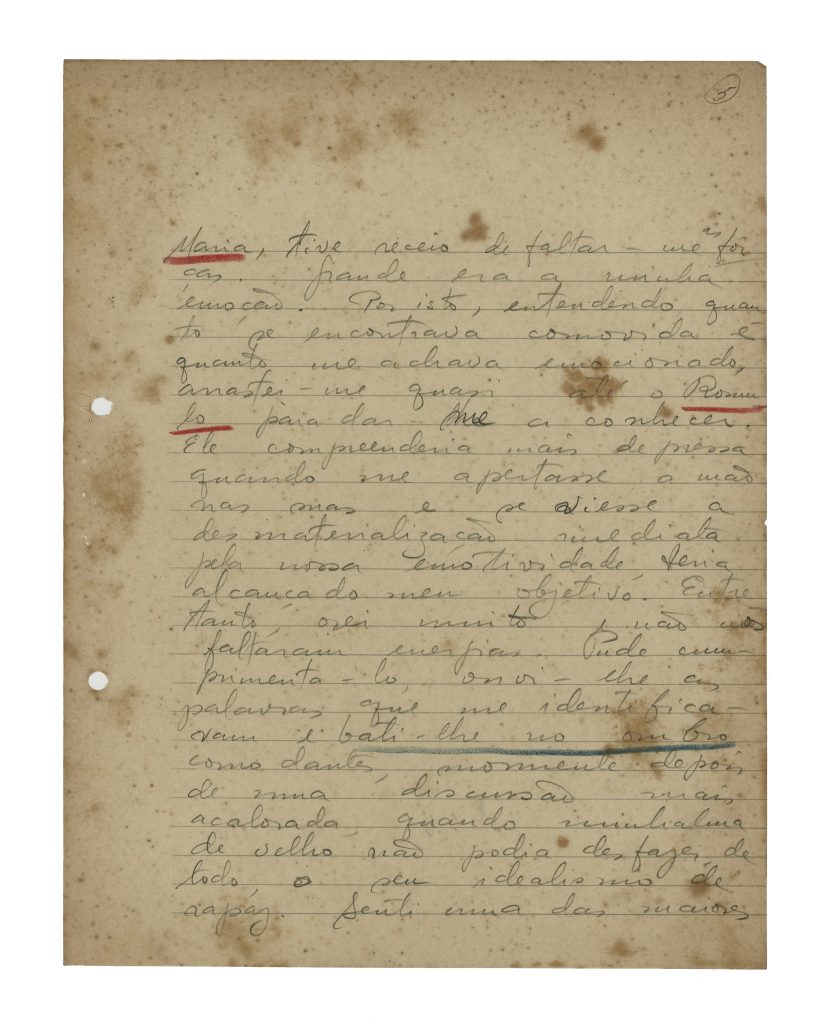 5
Maria, tive receio de faltar-me as fôr
ças. Grande era a minha
emoção. Por isto, entendendo quan
to se encontrava comovida e
quanto me achava emocionado,
arrastei-me quasi até o Romu
lo para dar me a conhecer.
Ele compreenderia mais depressa
quando me apertasse a mão
nas mas e se viesse a
desmaterialização imediata
pela nossa emotividade teria
alcançado meu objetivo. Entre
tanto, orei muito e não nos
faltaram energias. Pude cum-
primenta-lo, ouvi-lhe as
palavras que me identifica-
vam e bati-lhe no ombro
como dantes, mormente depois
de uma discussão mais
acalorada, quando minhalma
de velho não podia desfazer de
todo o seu idealismo de
rapaz. Senti uma das maiores